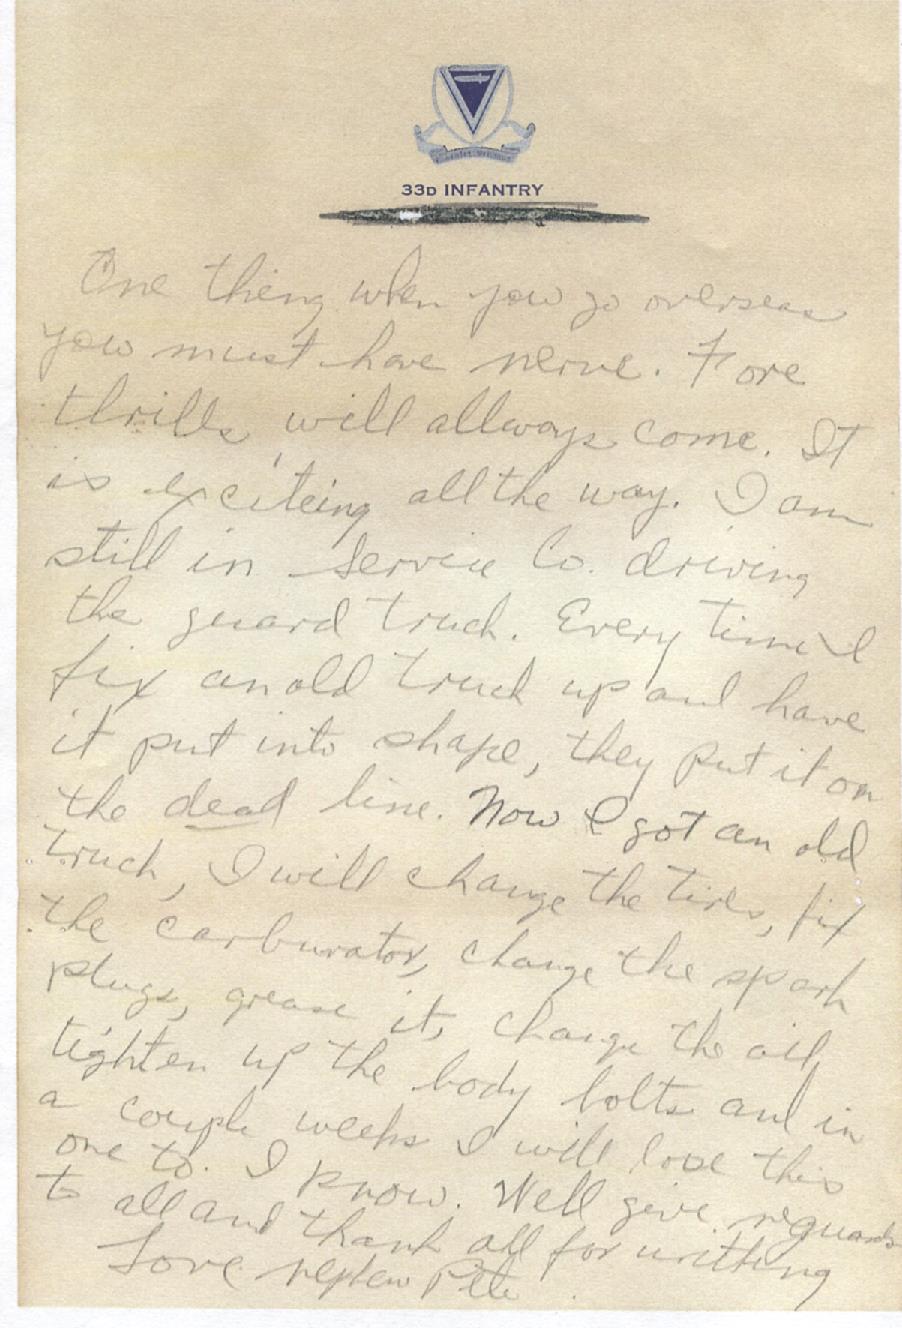 33D INFANTRY
One thing when you go overseas
you must have nerve. Fore
thrills will allways come. It
is exciteing all the way. I am
still in Service Co. driving
the guard truck. Every time I
fix an old truck up and have
it put into shape, they put it on
the dead line. Now I got an old
truck, I will change the tires, fix
the carburator, change the spark
plugs, grease it, change the oil,
tighten up the body bolts and in
a couple weeks I will lose this
one to. I know. Well give reguards
to all and thank all for writting
Love nephew Pete